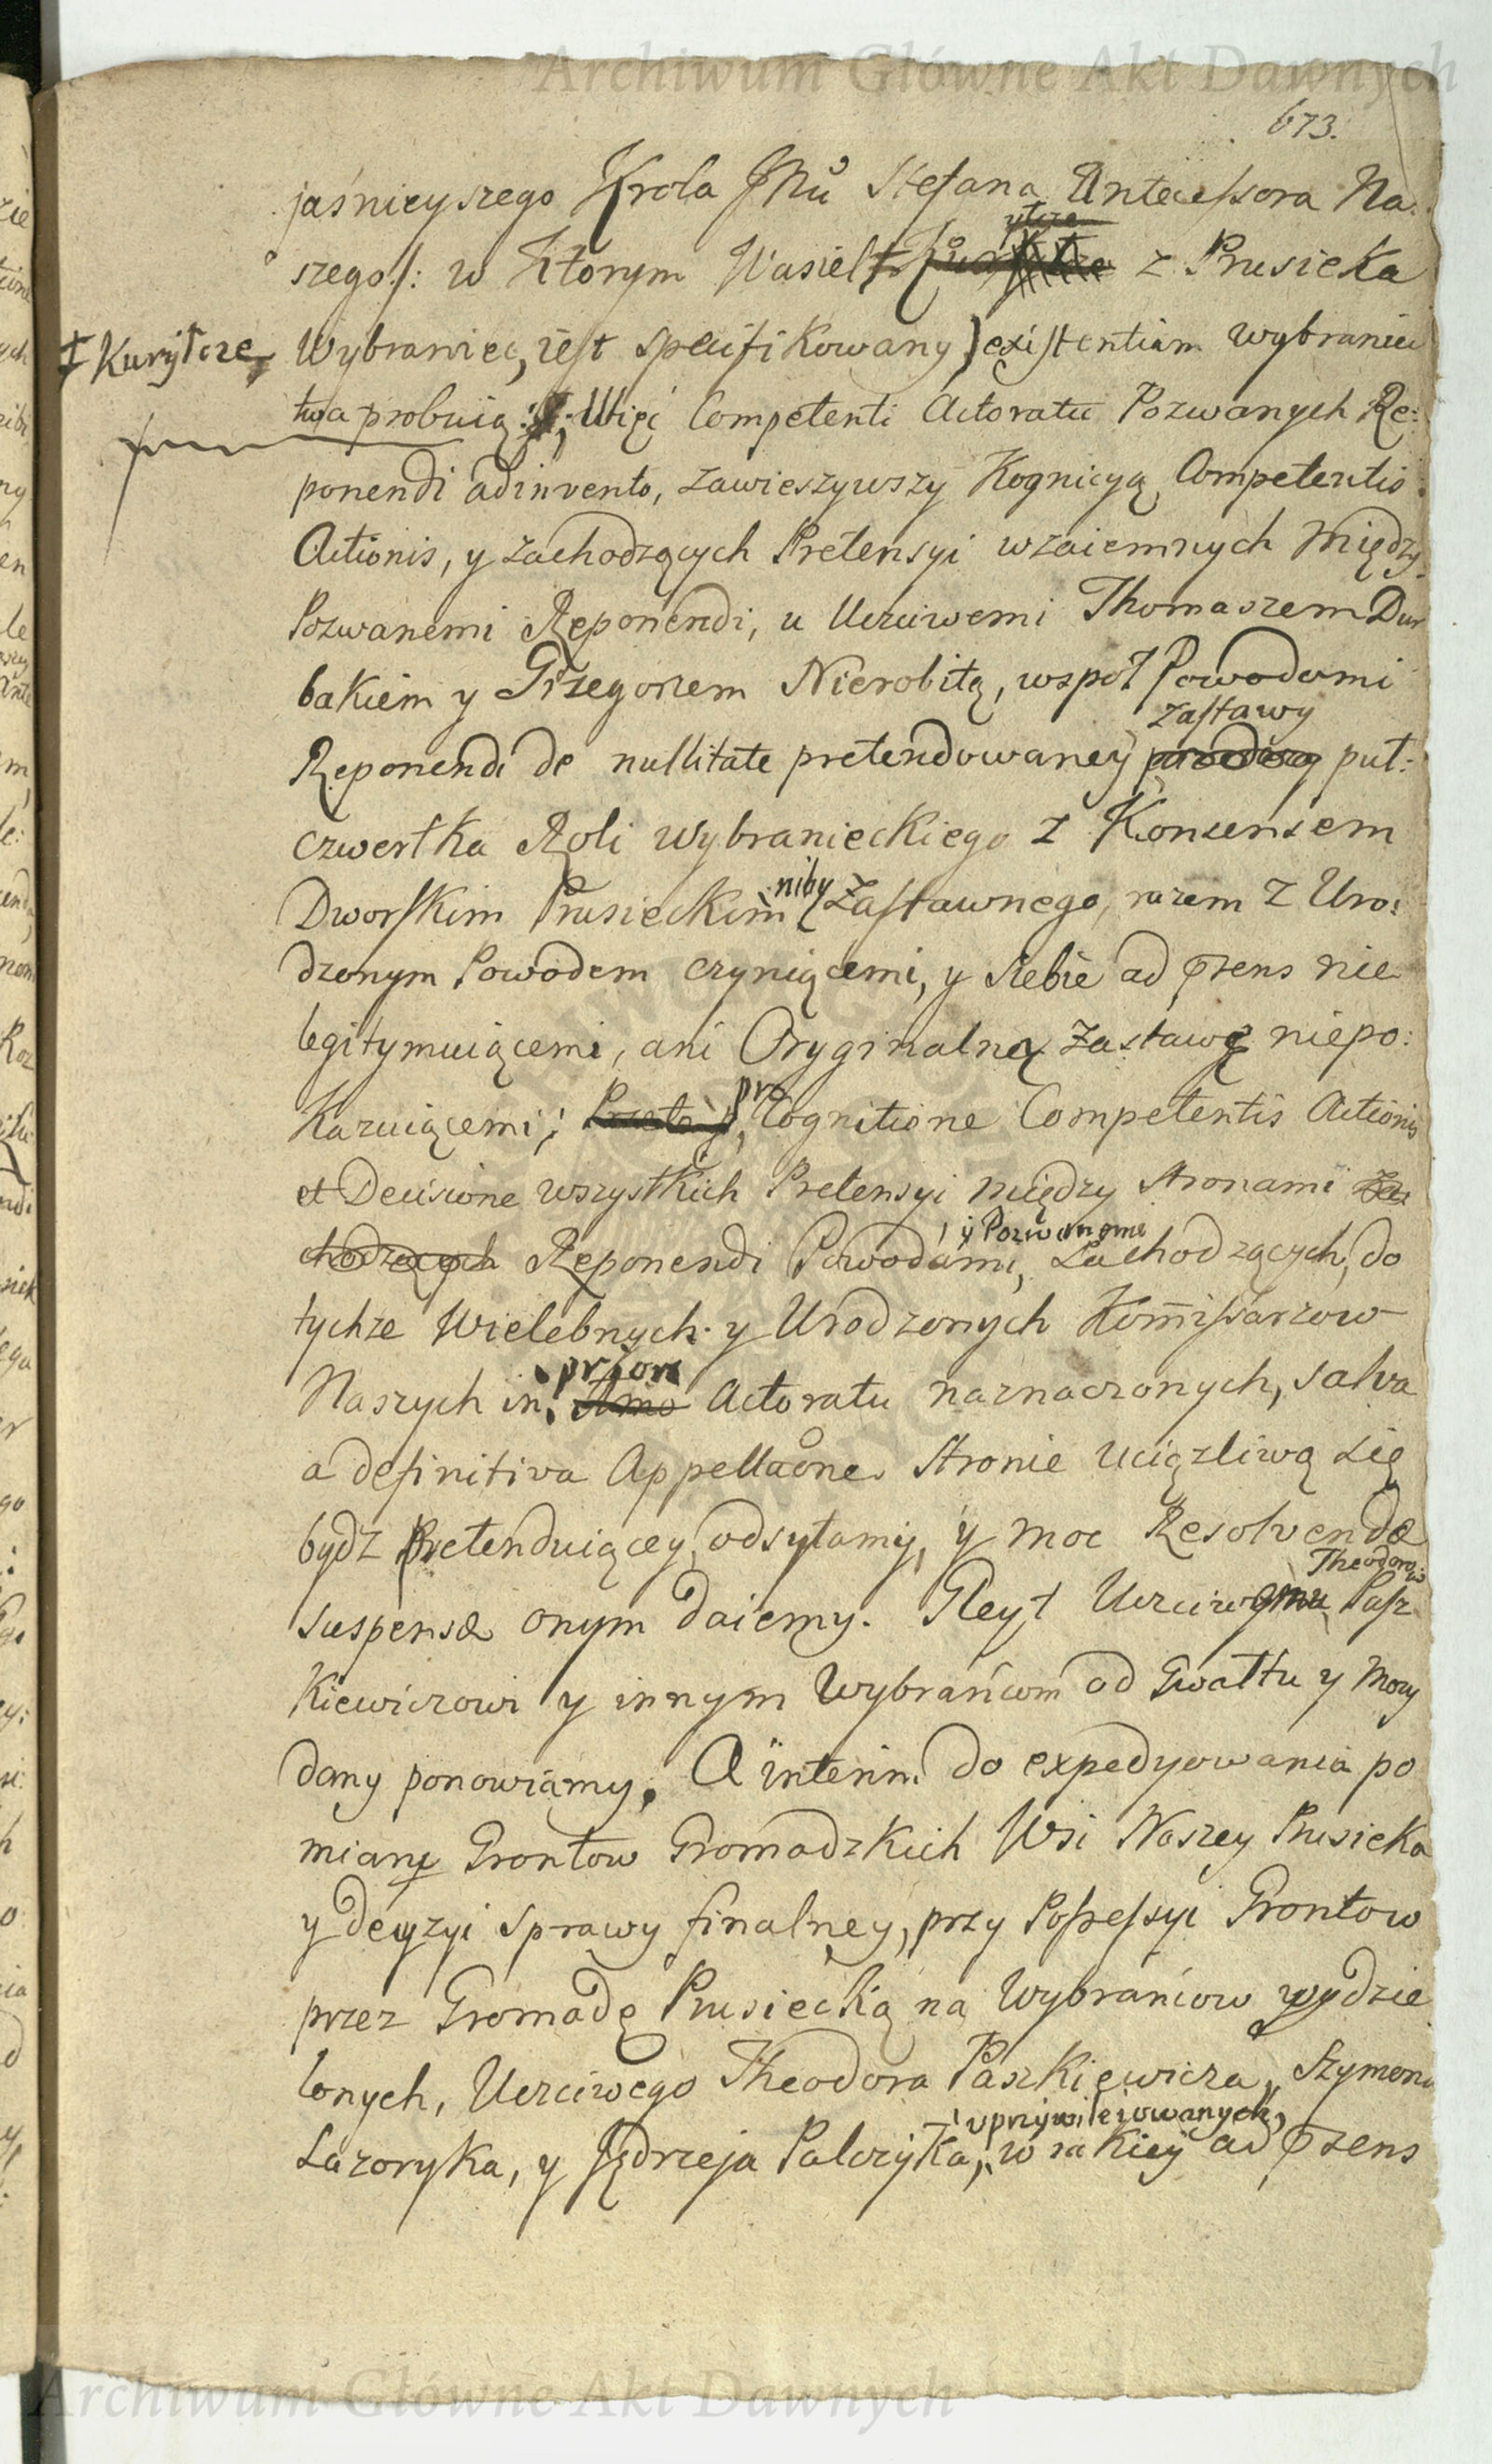 Archiwum Główne Akt Dawnych
673.
jaśnieyszego Krola JMü Stefana Antecessora Na:
szego/: w Ktorym Wasiel ‡ z Prusieka
‡ Kuryłcze
Wybraniec, iest specifikowany) existentiam wybraniec
twa probuią: Więc Competenti Actoratu Pozwanych Re:
ponendi adinvento, zawieszywszy Kognicyą Competentis
Actionis, y zachodzących Pretensyi wzaiemnych między
Pozwanemi Reponendi, u Uczciwemi Thomaszem Dur
bakiem y Grzegorzem Nierobitą, wspoł Powodami
zastawy
Reponendi de nullitate pretendowaney puł:
czwertka Roli Wybranieckiego z Konsensem
Dworskim Prusieckim niby Zastawnego, razem z Uro:
dzonym Powodem czyniącemi, y siebie ad pzens nie
legitymuiącemi, ani Oryginalną Zastawę niepo:
Kazuiącemi; pro Cognitione Competentis Actionis
et Decisione wszystkich Pretensyi między stronami
chodzących Reponendi Powodami, y Pozwanymi Zachodzących, do
tychże Wielebnych y Urodzonych Kommissarzow
Naszych in priori Actoratu naznaczonych, salva
a definitiva Appellaone Stronie uciążliwą się
bydz Pretenduiącey odsyłamy, y moc Resolvendæ
Theodorowi
suspensæ onym daiemy. Gleyt Uczciwemu Pasz
Kiewiczowi y innym Wybrańcom od Gwałtu y Mocy
dany ponowiamy. A interim do expedyowania po
miany Grontow Gromadzkich Wsi Naszey Prusieka
y decyzyi sprawy finalney, przy Possessyi Grontow
przez Gromadę Prusiecką na Wybrańcow wydzie
lonych, Uczciwego Theodora Paszkiewicza, Szymona
uprzywileiowanych,
Lazoryka, y Jędrzeja Palczyka, w iakiey ad pzens
Archiwum Główne Akt Dawnych